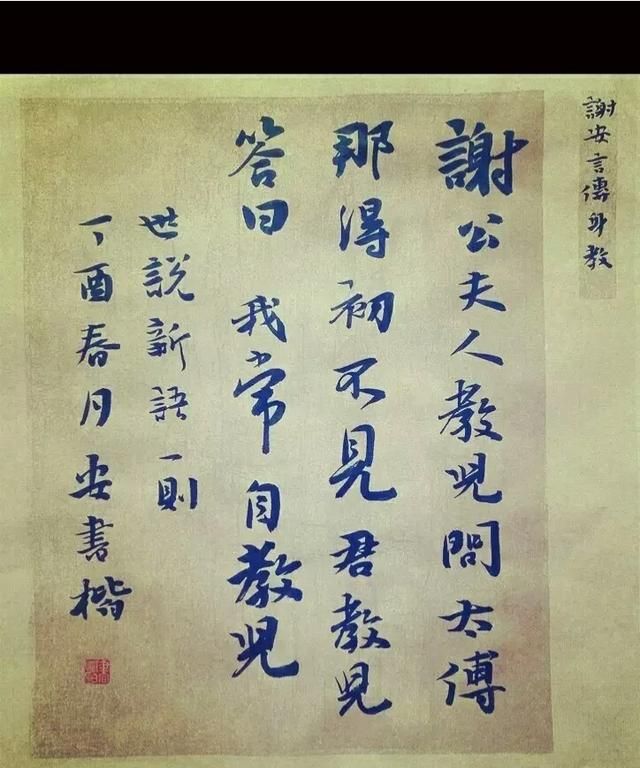 謝安言傳身教
謝公夫人教兒問太傅
那得初不見君教兒
答曰 我常自教兒
世說新語一則
丁酉春月安書楷